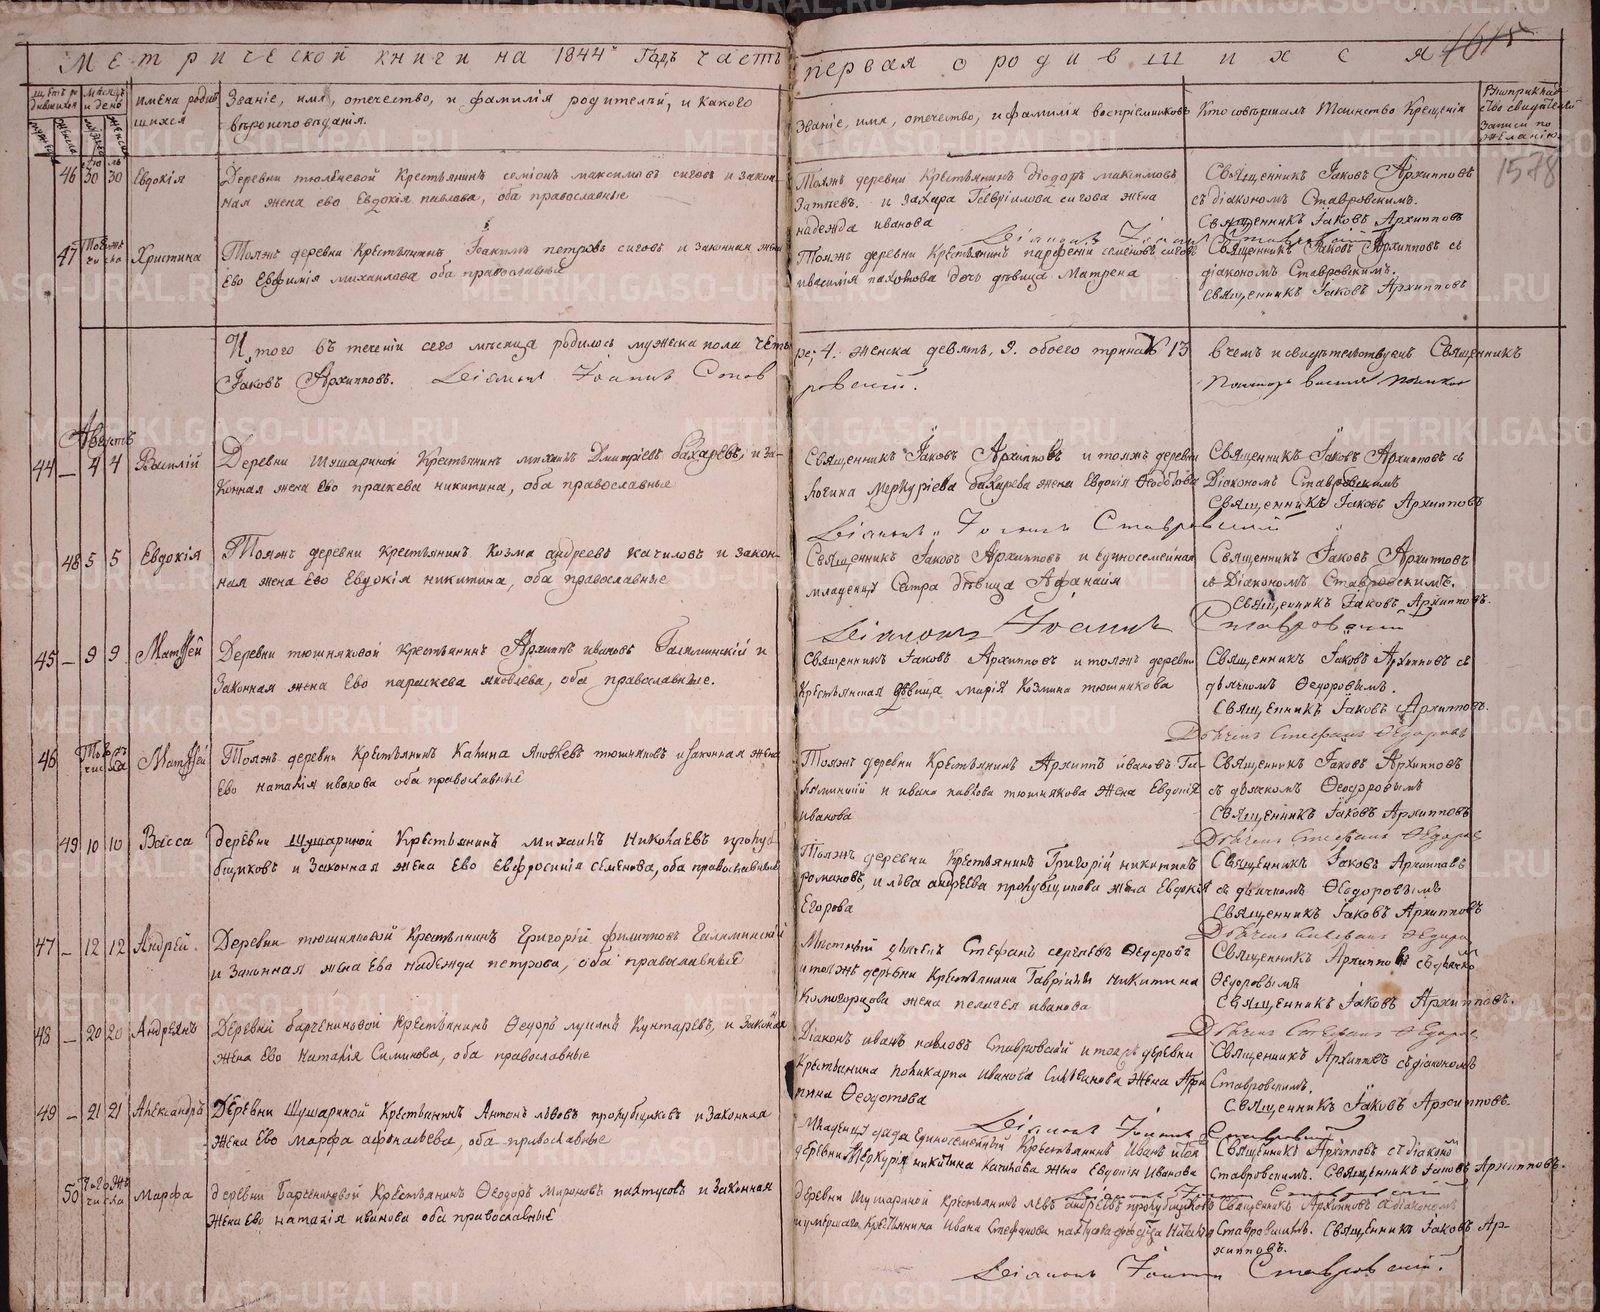 Метрической книги на 1844й Годъ часть первая о родившихся
1615
1578
Щетъ родившихся
мужеска
женска
Мѣсяцъ и день
имена родившихся
Званіе, имя, отечество, и фамилія родителей, и какого
вѣроисповѣданія.
Званіе, имя, отечество, и фамилія воспріемниковъ
Кто совѣршалъ Таинство Крещенія
Рукоприкладство свидѣтелей
записи по
желанію
46 30 30 Евдокія
Деревни тюленевой Крестьянинъ семіонъ максимовъ сиговъ и закон-
ная жена ево Евдокія павлова, оба православные
Тояжъ деревни Крестьянинъ Ѳіодоръ максимовъ
и захара Гавріилова сигова жена
надежда иванова
Священникъ Іаковъ Архипповъ
съ діакономъ Ставровскимъ.
Священникъ Іаковъ Архипповъ
Діаконъ Іоаннъ Ставровскій
47 Христина
Тояжъ деревни Крестьянинъ Іоакимъ петровъ сиговъ и законная жена
Ево Евфимія михаилова оба православные
Тояжъ деревни Крестьянинъ парфеній семеновъ сиговъ
дочь дѣвица Матрена
Священникъ Іаковъ Архипповъ съ
діакономъ Ставровскимъ.
Священникъ Іаковъ Архипповъ
И того въ теченіи сего мѣсяца родилось мужеска пола четы
ре, 4. женска девять, 9. обоего 13 в чемъ и свидѣтельствуемъ Священникъ
Іаковъ Архипповъ. Діаконъ Іоаннъ Став
ровскій.
Августъ
44 – 4 4 Василій
Деревни Шушариной Крестьянинъ михаилъ Дмитріевъ бахаревъ, и за-
конная жена Ево праскева никитина, оба православные
Священникъ Іаковъ Архипповъ и тояжъ деревни
логина Меркуріева бахарева жена Евдокія
Священникъ Іаковъ Архипповъ съ
Діакономъ Ставровскимъ
Священникъ Іаковъ Архипповъ
Діаконъ Іоаннъ Ставровскій
48 5 5 Евдокія
Тояжъ деревни Крестьянинъ Козма андреевъ качиловъ и закон-
ная жена Ево Евдокія никитина, оба православные
Священникъ Іаковъ Архипповъ и единосемейная
младенцу сестра дѣвица Афанаія
Священникъ Іаковъ Архипповъ
съ Діакономъ Ставровскимъ.
Священникъ Іаковъ Архипповъ.
Діаконъ Іоаннъ Ставровскій
45 – 9 9 Матѳей
Деревни тюшняковой Крестьянинъ Архипъ ивановъ Галяминскій и
Законная жена Ево параскева яковлева, оба православные.
Священникъ Іаковъ Архипповъ и тояжъ деревни
Крестьянская дѣвица марія Козмина тюшникова
Священникъ Іаковъ Архипповъ съ
дьячкомъ Ѳедоровымъ.
Священникъ Іаковъ Архипповъ.
Дьячекъ Стефанъ Ѳедоровъ
46 Матѳей
Тояжъ деревни Крестьянинъ Калина Яковлевъ тюшняковъ и законная жена
Ево наталія иванова оба православные
Тояжъ деревни Крестьянинъ Архипъ ивановъ Га-
ляминшій и ивана павлова тюшнякова жена Евдокія
иванова
Священникъ Іаковъ Архипповъ
съ дьячкомъ Ѳеодоровымъ
Священникъ Іаковъ Архипповъ
Дьячекъ Стефанъ Ѳедоровъ
49 10 10 Васса
деревни Шушариной Крестьянинъ михаилъ Николаевъ пролуб-
бщиковъ и Законная жена Ево Евфросинія семенова, оба православные
Тояжъ деревни Крестьянинъ Григорій никитинъ
романовъ, и лѣва андреева пролубщикова жена Евдокія
Егорова
Священникъ Іаковъ Архипповъ
съ дьячкомъ Ѳеодоровымъ
Священникъ Іаковъ Архипповъ
Дьячекъ Стефанъ Ѳедоровъ
47 – 12 12 Андрей.
Деревни тюшняковой Крестьянинъ Григорій филиповъ Галяминскій
и Законная жена Ево надежда петрова, оба православные
Мѣстный дьячекъ Стефанъ сергеевъ Ѳедоровъ
и тояжъ деревни Крестьянина Гавріила Никитина
Комогорцова жена пелагея иванова
Священникъ Архипповъ съ дьячко
Ѳедоровымъ
Священникъ Іаковъ Архипповъ.
Дьячекъ Стефанъ Ѳедоровъ
48 – 20 20 Андреянъ
Деревни барчениновой Крестьянинъ Ѳедоръ Кунгаревъ, и Законная
жена Ево наталія Симинова, оба православные
Діаконъ иванъ павловъ Ставровскій и тояжъ деревни
Крестьянина поликарпа Иванова Силиванова жена Агри
пина Ѳедотова
Священникъ Архипповъ съ діакономъ
Ставровскимъ.
Священникъ Іаковъ Архипповъ.
Діаконъ Іоаннъ Ставровскій
49 – 21 21 Александръ
Деревни Шушариной Крестьянинъ Антонъ львовъ пролубщиковъ и Законная
жена Ево марфа афонасьева, оба православные
Младенцу дядя Единосемейный Крестьянинъ Иванъ и тоя
деревни Меркурія никитина Качилова жена Евдокія Иванова
Священникъ Архипповъ съ діаконо
Ставровскимъ. Священникъ Іаковъ Архипповъ.
Діаконъ Іоаннъ Ставровскій
50 Марфа
деревни Барчениновой Крестьянинъ Ѳеодоръ мироновъ пахтусовъ и Законная
жена Ево наталія иванова оба православные
деревни Шушариной Крестьянинъ левъ андреевъ пролубщиковъ
и умершаго Крестьянина Ивана Стефанова пахтусова
Священникъ Архипповъ съ діакономъ
Ставровскимъ. Священникъ Іаковъ Ар-
хипповъ.
Діаконъ Іоаннъ Ставровскій.